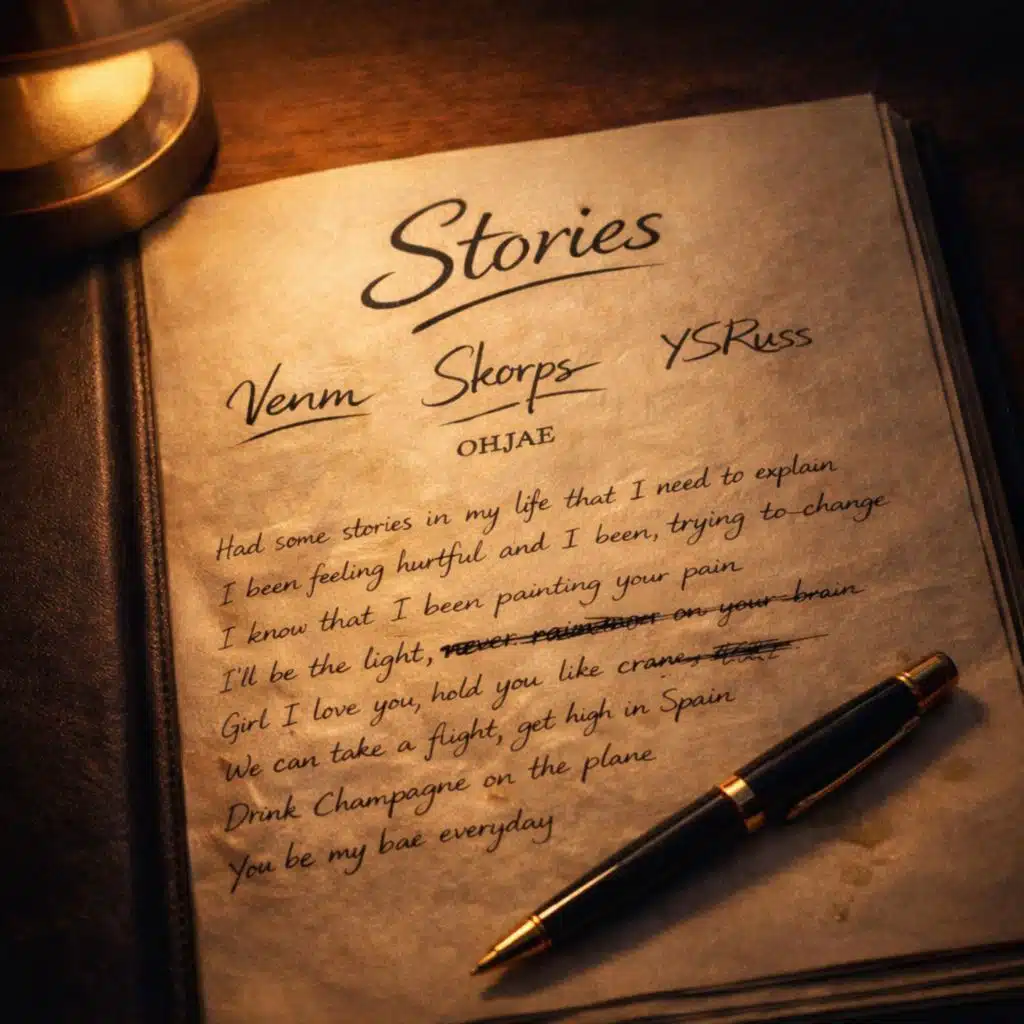 Stories
Venm Skorps YSRuss
OHJAE
Had some stories in my life that I need to explain
I been feeling hurtful and I been, trying to change
I know that I been painting your pain
I'll be the light, never on your brain
Girl I love you, hold you like crane
We can take a flight, get high in Spain
Drink Champagne on the plane
You be my bae everyday